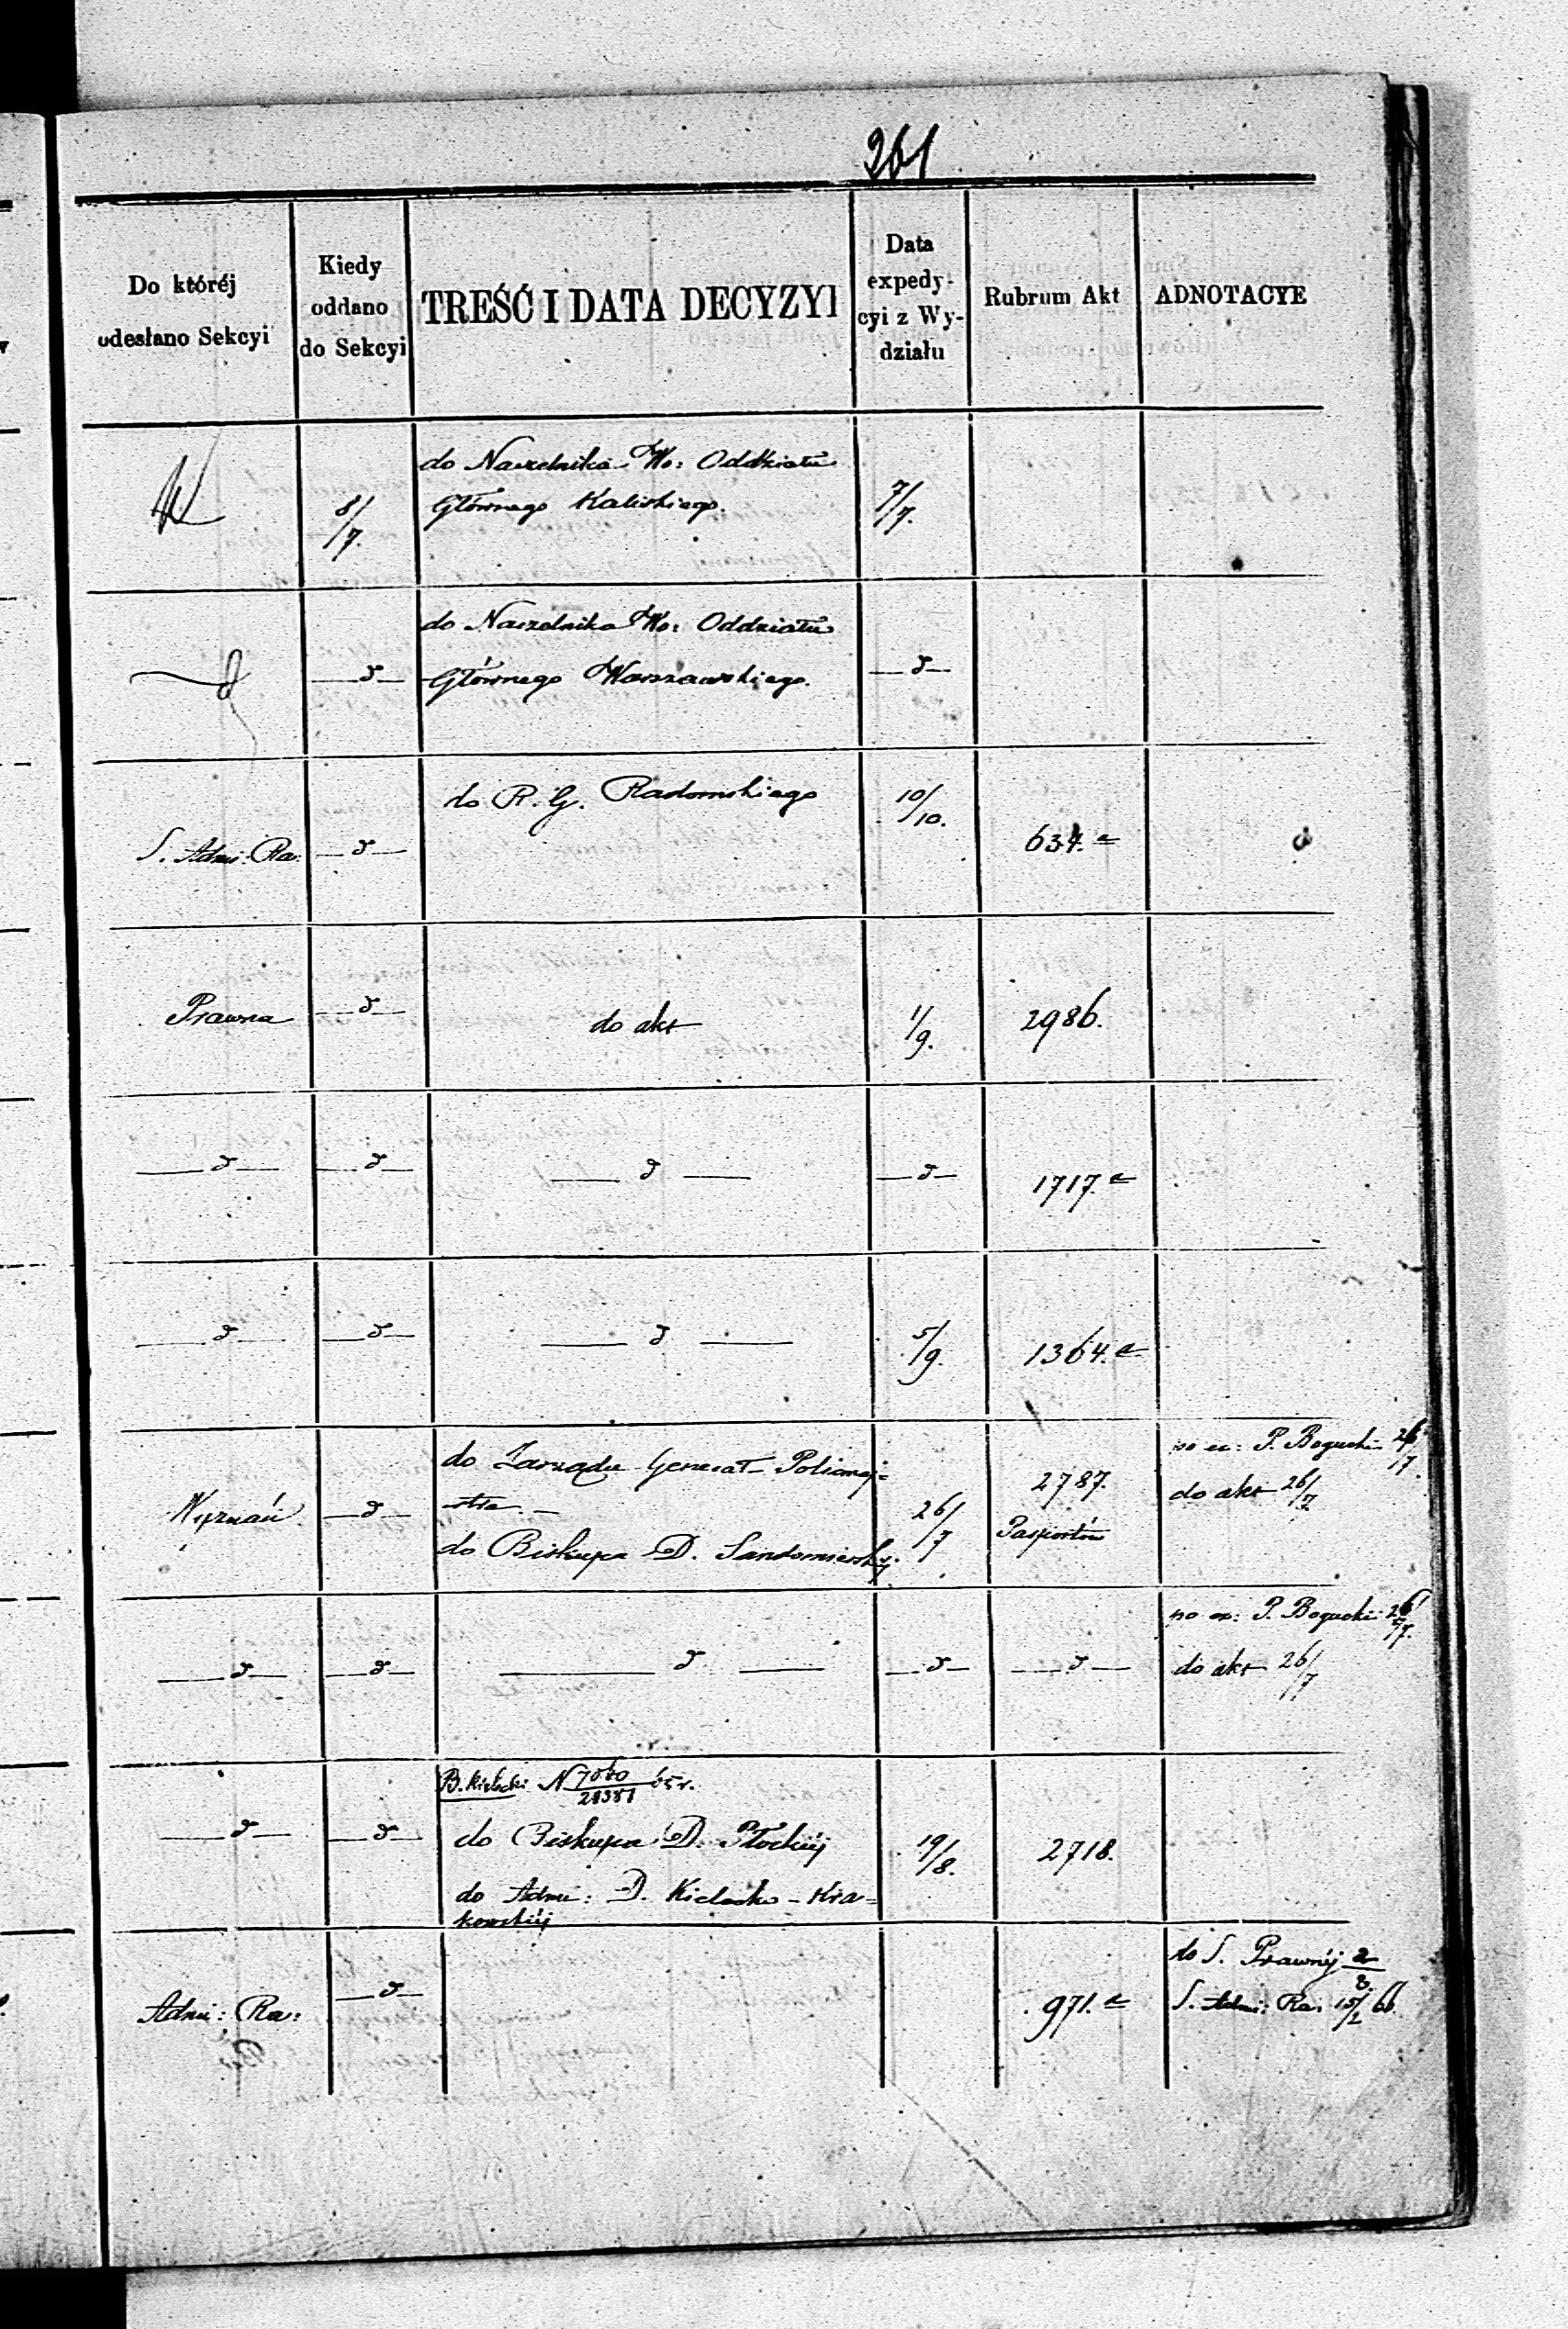 261
Do któréj
udesłano Sekcyi
Kiedy
oddano
do Sekcyi
TREŚĆ I DATA DECYZYI
Data
expedy-
cyi z Wy-
działu
Rubrum Akt
ADNOTACYE
8/7.
do Naczelnika Wo: Oddziału
Głównego Kaliskiego.
7/7.
d
do Naczelnika Wo: Oddziału
Głównego Warszawskiego.
d
S. Admi: Ra:
d
do R. G. Radomskiego
10/10.
634.
Prawna
d
do akt
1/9.
2986.
d
d
d
d
1717.
d
d
d
5/9.
1364.
Wyznań
d
do Zarządu Generał-Policmaj=
stra. —
do Biskupa D. Sandomierskiej
26/7
2787.
Pasportów
po ex: P. Bogucki 26/7
do akt 26/7
d
d
d
d
d
po ex: P. Bogucki 26/7.
do akt 26/7
d
d
B. Kielecki N 7060/21381 65 r.
do Biskupa D. Płockiéj
do Admi: D. Kielecko-Kra=
kowskiéj
19/8.
2718.
Admi: Ra:
d
971.
do S. Prawnéj 2/8.
S. Admi: Ra: 15/2 66.